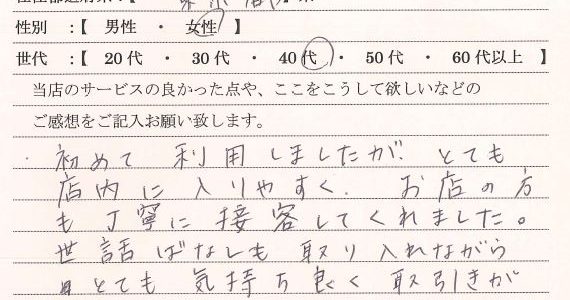 性別 :【 男性 ・ 女性 】
世代 :【 20代 ・ 30代 ・ 40代 ・ 50代 ・ 60代以上 】
当店のサービスの良かった点や、ここをこうして欲しいなどの
ご感想をご記入お願い致します。
・初めて利用しましたが、とても
店内に入りやすく、お店の方
も丁寧に接客してくれました。
世話ばなしも取り入れながら
とても気持ち良く取引きが